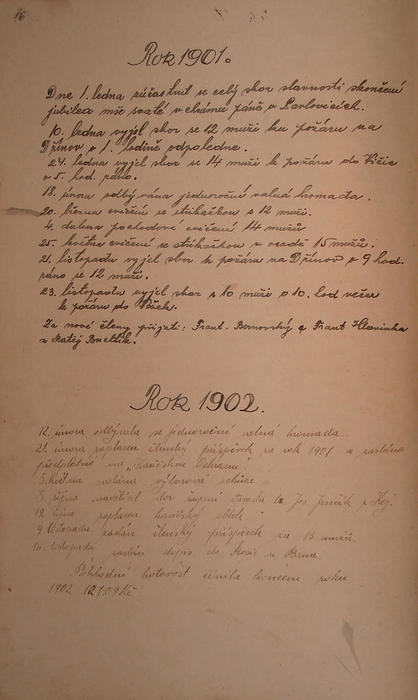 16
Rok 1901.
Dne 1. ledna súčastnil se celý sbor slavnosti skončení
jubilea mše svaté v chrámu páně v Pavlovicích.
10. ledna vyjel sbor se 12 muži ku požáru na
Dřínov v 1. hodině odpoledne.
24. ledna vyjel sbor se 14 muži k požáru do
v 5. hod. ráno.
18. února odbývána jednoroční valná hromada.
20. března cvičení se stříkačkou s 12 muži.
4. dubna pochodové cvičení 14 mužů
25. května cvičení se stříkačkou v osadě 15 mužů.
21. listopadu vyjel sbor k požáru na Dřínov v 9 hod.
ráno se 12 muži.
23. listopadu vyjel sbor s 10 muži o 10. hod večer
k požáru do
Za nové členy přijati: Frant. a Frant Hlavinka
a Matěj
Rok 1902.
12. února odbývala se jednoroční valná hromada.
21. února zaplacen členský příspěvek za rok 1901 a zasláno
předplatné na Hasičskou Ochranu
5. května výborová schůze.
5. října navštívil sbor župní Jos.
18. října zaplacen hasičský
9 listopadu zaslán členský příspěvek za 13 mužů.
10. listopadu zaslán dopis do v Brně.
Pokladní hotovost činila koncem roku
1902